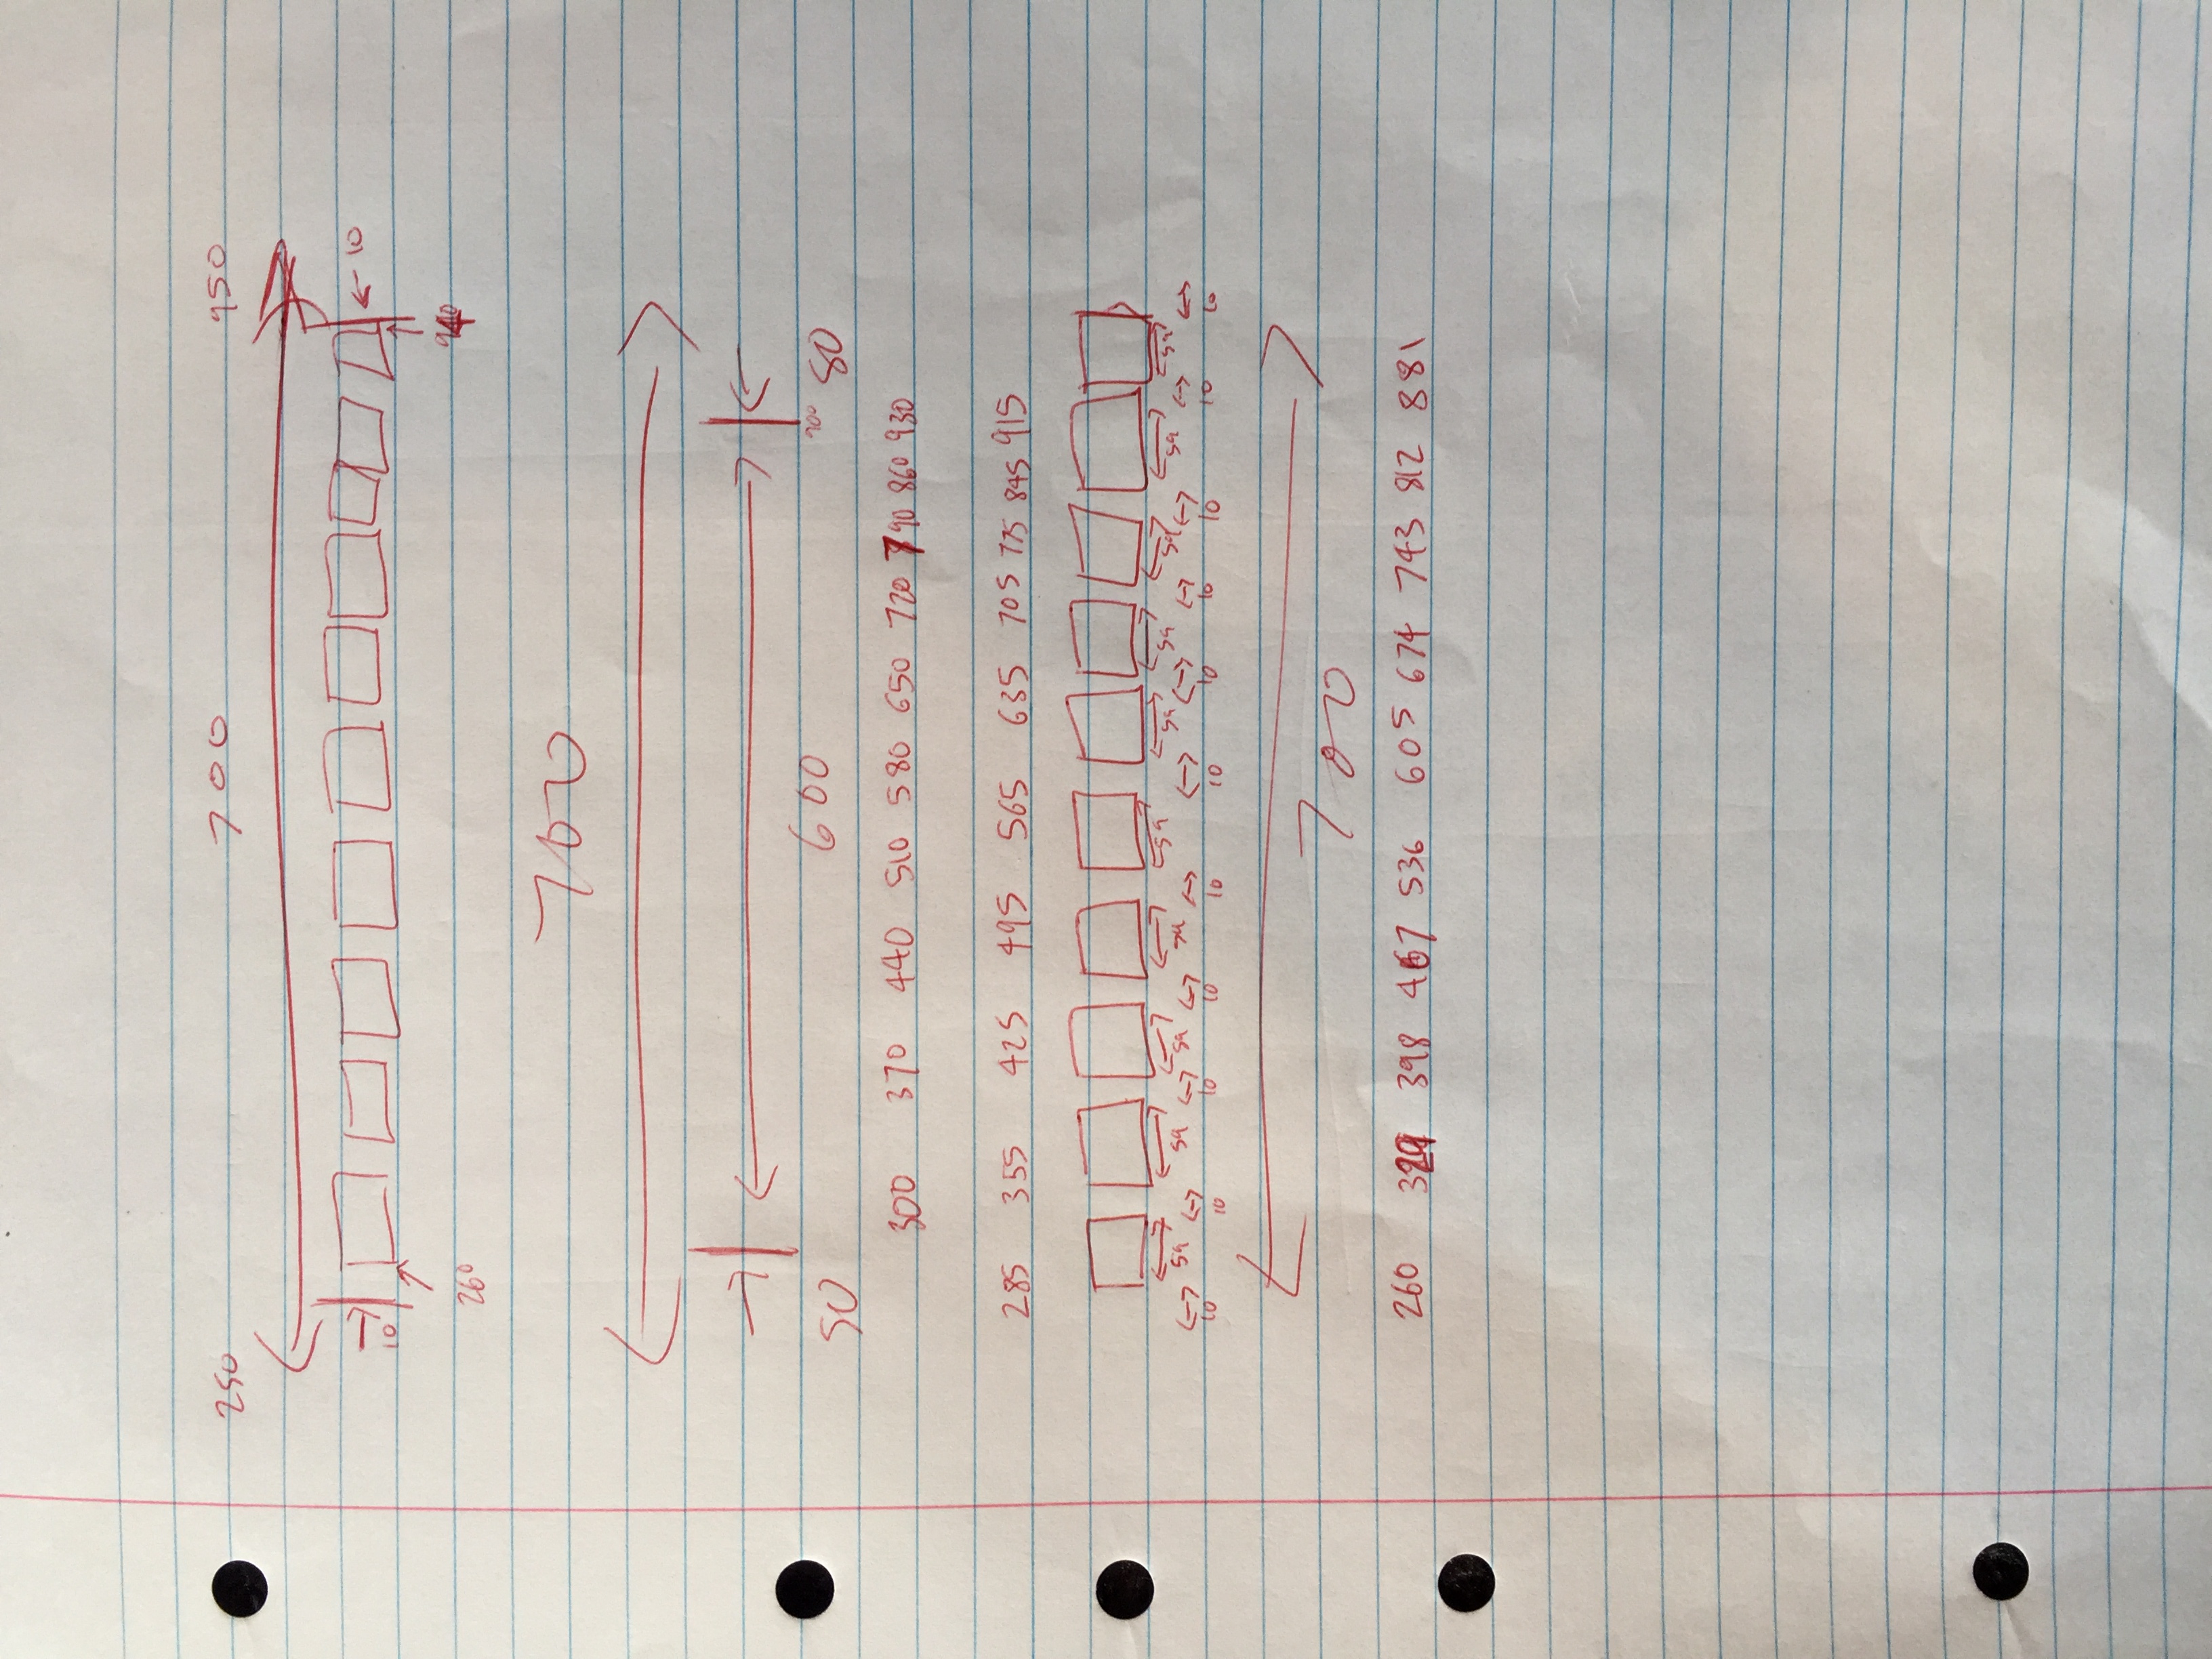 250 700 950
10 10
260 940
700
50 600 900 50
300 370 440 510 580 650 720 790 860 930
285 355 425 495 565 635 705 775 845 915
59 59 59 59 59 59 59 59 59 59
10 10 10 10 10 10 10 10 10 10 10
700
260 329 398 467 536 605 674 743 812 881